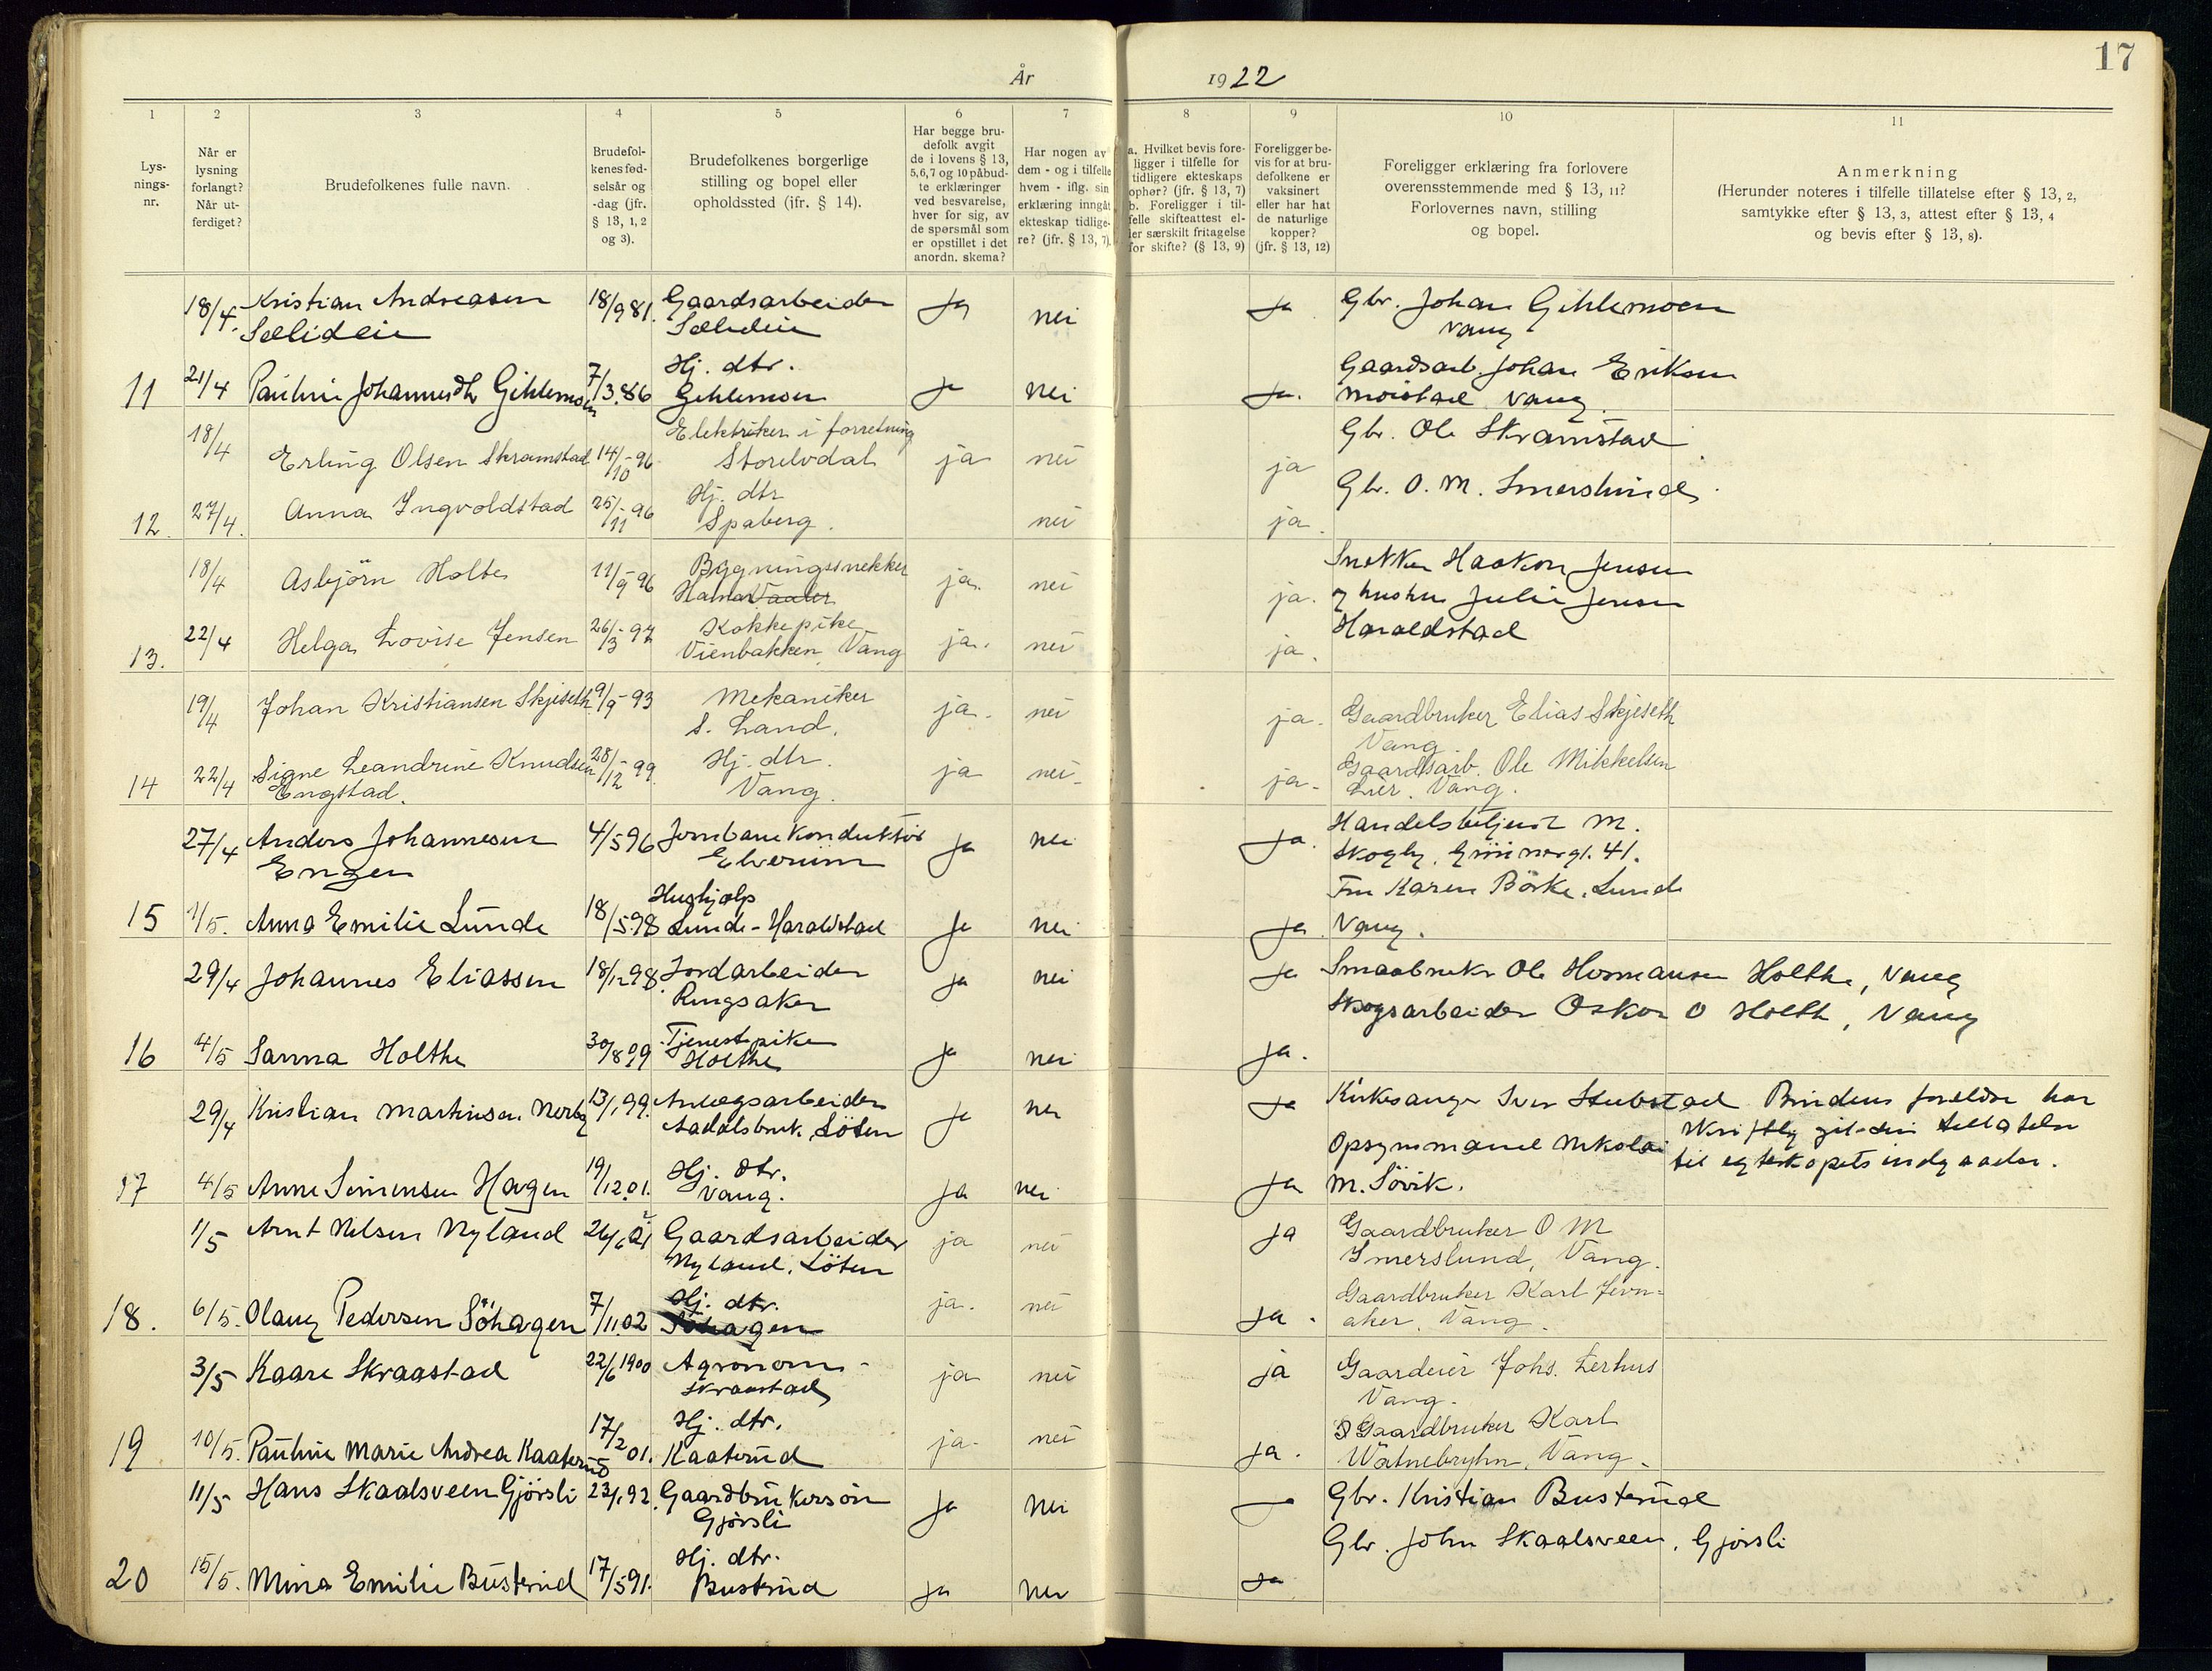 17
År 1922
1 2 3 4 5 6 7 8 9 10 11
Lys-
nings-
nr.
Når er
lysning
forlangt?
Når ut-
ferdiget?
Brudefolkenes fulle navn.
Brudefol-
kenes fød-
selsår og
-dag (jfr.
§ 13, 1, 2
og 3).
Brudefolkenes borgerlige
stilling og bopel eller
opholdssted (jfr. § 14).
Har begge bru-
defolk avgit
de i lovens § 13,
5,6,7 og 10 påbud-
te erklæringer
ved besvarelse,
hver for sig, av
de spørsmål som
er opstillet i det
anordn. skema?
Har nogen av
dem - og i tilfelle
hvem - iflg. sin
erklæring inngåt
ekteskap tidlige-
re? (jfr. § 13, 7).
a. Hvilket bevis fore-
ligger i tilfelle for
tidligere ekteskaps
ophør? (jfr. § 13, 7)
b. Foreligger i til-
felle skifteattest el-
ler særskilt fritagelse
for skifte? (§ 13, 9)
Foreligger be-
vis for at bru-
defolkene er
vaksinert
eller har hat
de naturlige
kopper?
(jfr. § 13, 12)
Foreligger erklæring fra forlovere
overensstemmende med § 13, 11?
Forlovernes navn, stilling
og bopel.
Anmerkning
(Herunder noteres i tilfelle tillatelse efter § 13, 2,
samtykke efter § 13, 3, attest efter § 13, 4
og bevis efter § 13, 8).
18/4. Kristian Andreasen 18/9 81. Gaardsarbeider Ja nei Ja Gbr. Johan Gihlemoen
Sælideie Sælideie Vang
Hj. dtr. Gaardsarb. Johan Eriksen
11 21/4 Pauline Johannesdtr Gihlemoen 7/3.86 Gihlemoen Ja nei Ja. Moistad Vang.
18/4 Elektriker i forretning Gbr. Ole Skramstad
Erling Olsen Skramstad 14/10-96 Storelvdal ja nei ja
Hj. dtr Gbr. O. M. Smerslund
12. 27/4. Anna Ingvoldstad 25/11-96 Spaberg. nei ja.
18/4 Asbjörn Holte 11/9-96 Bygningssnekker ja. nei ja. Snekker Haakon Jensen
Hamar Vaaler og hustru Julie Jensen
13. 22/4 Helga Lovise Jensen 26/3-97 Kokkepike ja. nei ja. Haraldstad
Vienbakken, Vang
19/4 Johan Kristiansen Skjeseth 9/9-93 Mekaniker ja. nei ja. Gaardbruker Elias Skjeseth
S. Land. Vang.
14 22/4 Signe Leandrine Knudsen 28/12-99. Hj. dtr. ja nei- ja- Gaardsarb. Ole Mikkelsen
Engstad. Vang. Lier. Vang.
27/4 Anders Johannesen 4/5 96 Jernbanekonduktör Ja nei Ja. Handelsbetjent M.
Engen Elverum Skogly. Grünergt. 41.
Hushjælp Fru Karen Börke, Lunde
15 1/5. Anna Emilie Lunde 18/5.98 Lunde-Haraldstad Ja nei Ja. Vang.
29/4 Johannes Eliassen 18/12 98. Jordarbeider Ja nei Ja Smaabruker Ole Hermansen Holthe, Vang
Ringsaker Skogsarbeider Oskar O Holth, Vang
16 4/5 Sanna Holthe 30/8 99 Tjenestepike Ja nei Ja.
Holthe
29/4 Kristian Martinsen Norby 13/1 99. Anlægsarbeider Ja nei Ja Kirkesanger Iver Stubstad Brudens foreldre har
Aadalsbruk, Löten skriftlig git sin tillatelse
Opsynsmand Nikolai til egteskapets indgaaelse.
17 4/5 Anne Simensen Hagen 19/12.01. Hj. dtr. Ja nei Ja M. Sövik.
Vang.
1/5 Arnt Nilsen Nyland 26/6 01 Gaardsarbeider ja nei ja Gaardbruker O M
Nyland. Löten Smerslund, Vang.
18. 6/5. Olaug Pedersen Söhagen 7/11.02 Hj. dtr. ja. nei ja. Gaardbruker Karl Jevn-
Söhagen aker, Vang.
3/5 Kaare Skraastad 22/6 1900 Agronom- ja nei ja Gaardeier Johs. Lerhus
Skraastad Vang.
19 10/5. Pauline Marie Andrea Kaaterud 17/2 01. Hj. dtr. ja. nei ja. Gaardbruker Karl
Kaaterud Watnebryhn, Vang.
11/5 Hans Skaalsveen Gjörsli 23/1 92. Gaardbrukersön Ja nei Gbr. Kristian Busterud
Gjörsli Gbr. John Skaalsveen, Gjörsli
20 15/5. Mina Emilie Busterud 17/5 91. Hj. dtr. Ja nei Ja
Busterud